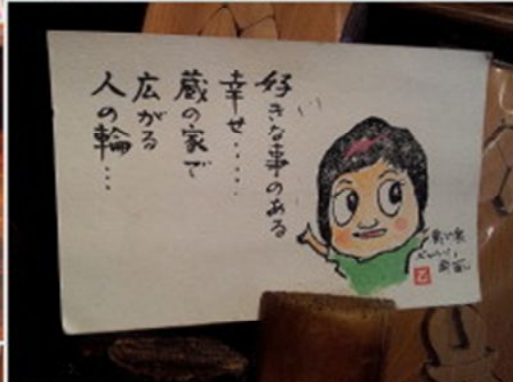 好きな事のある
幸せ……
蔵の家で
広がる
人の輪…